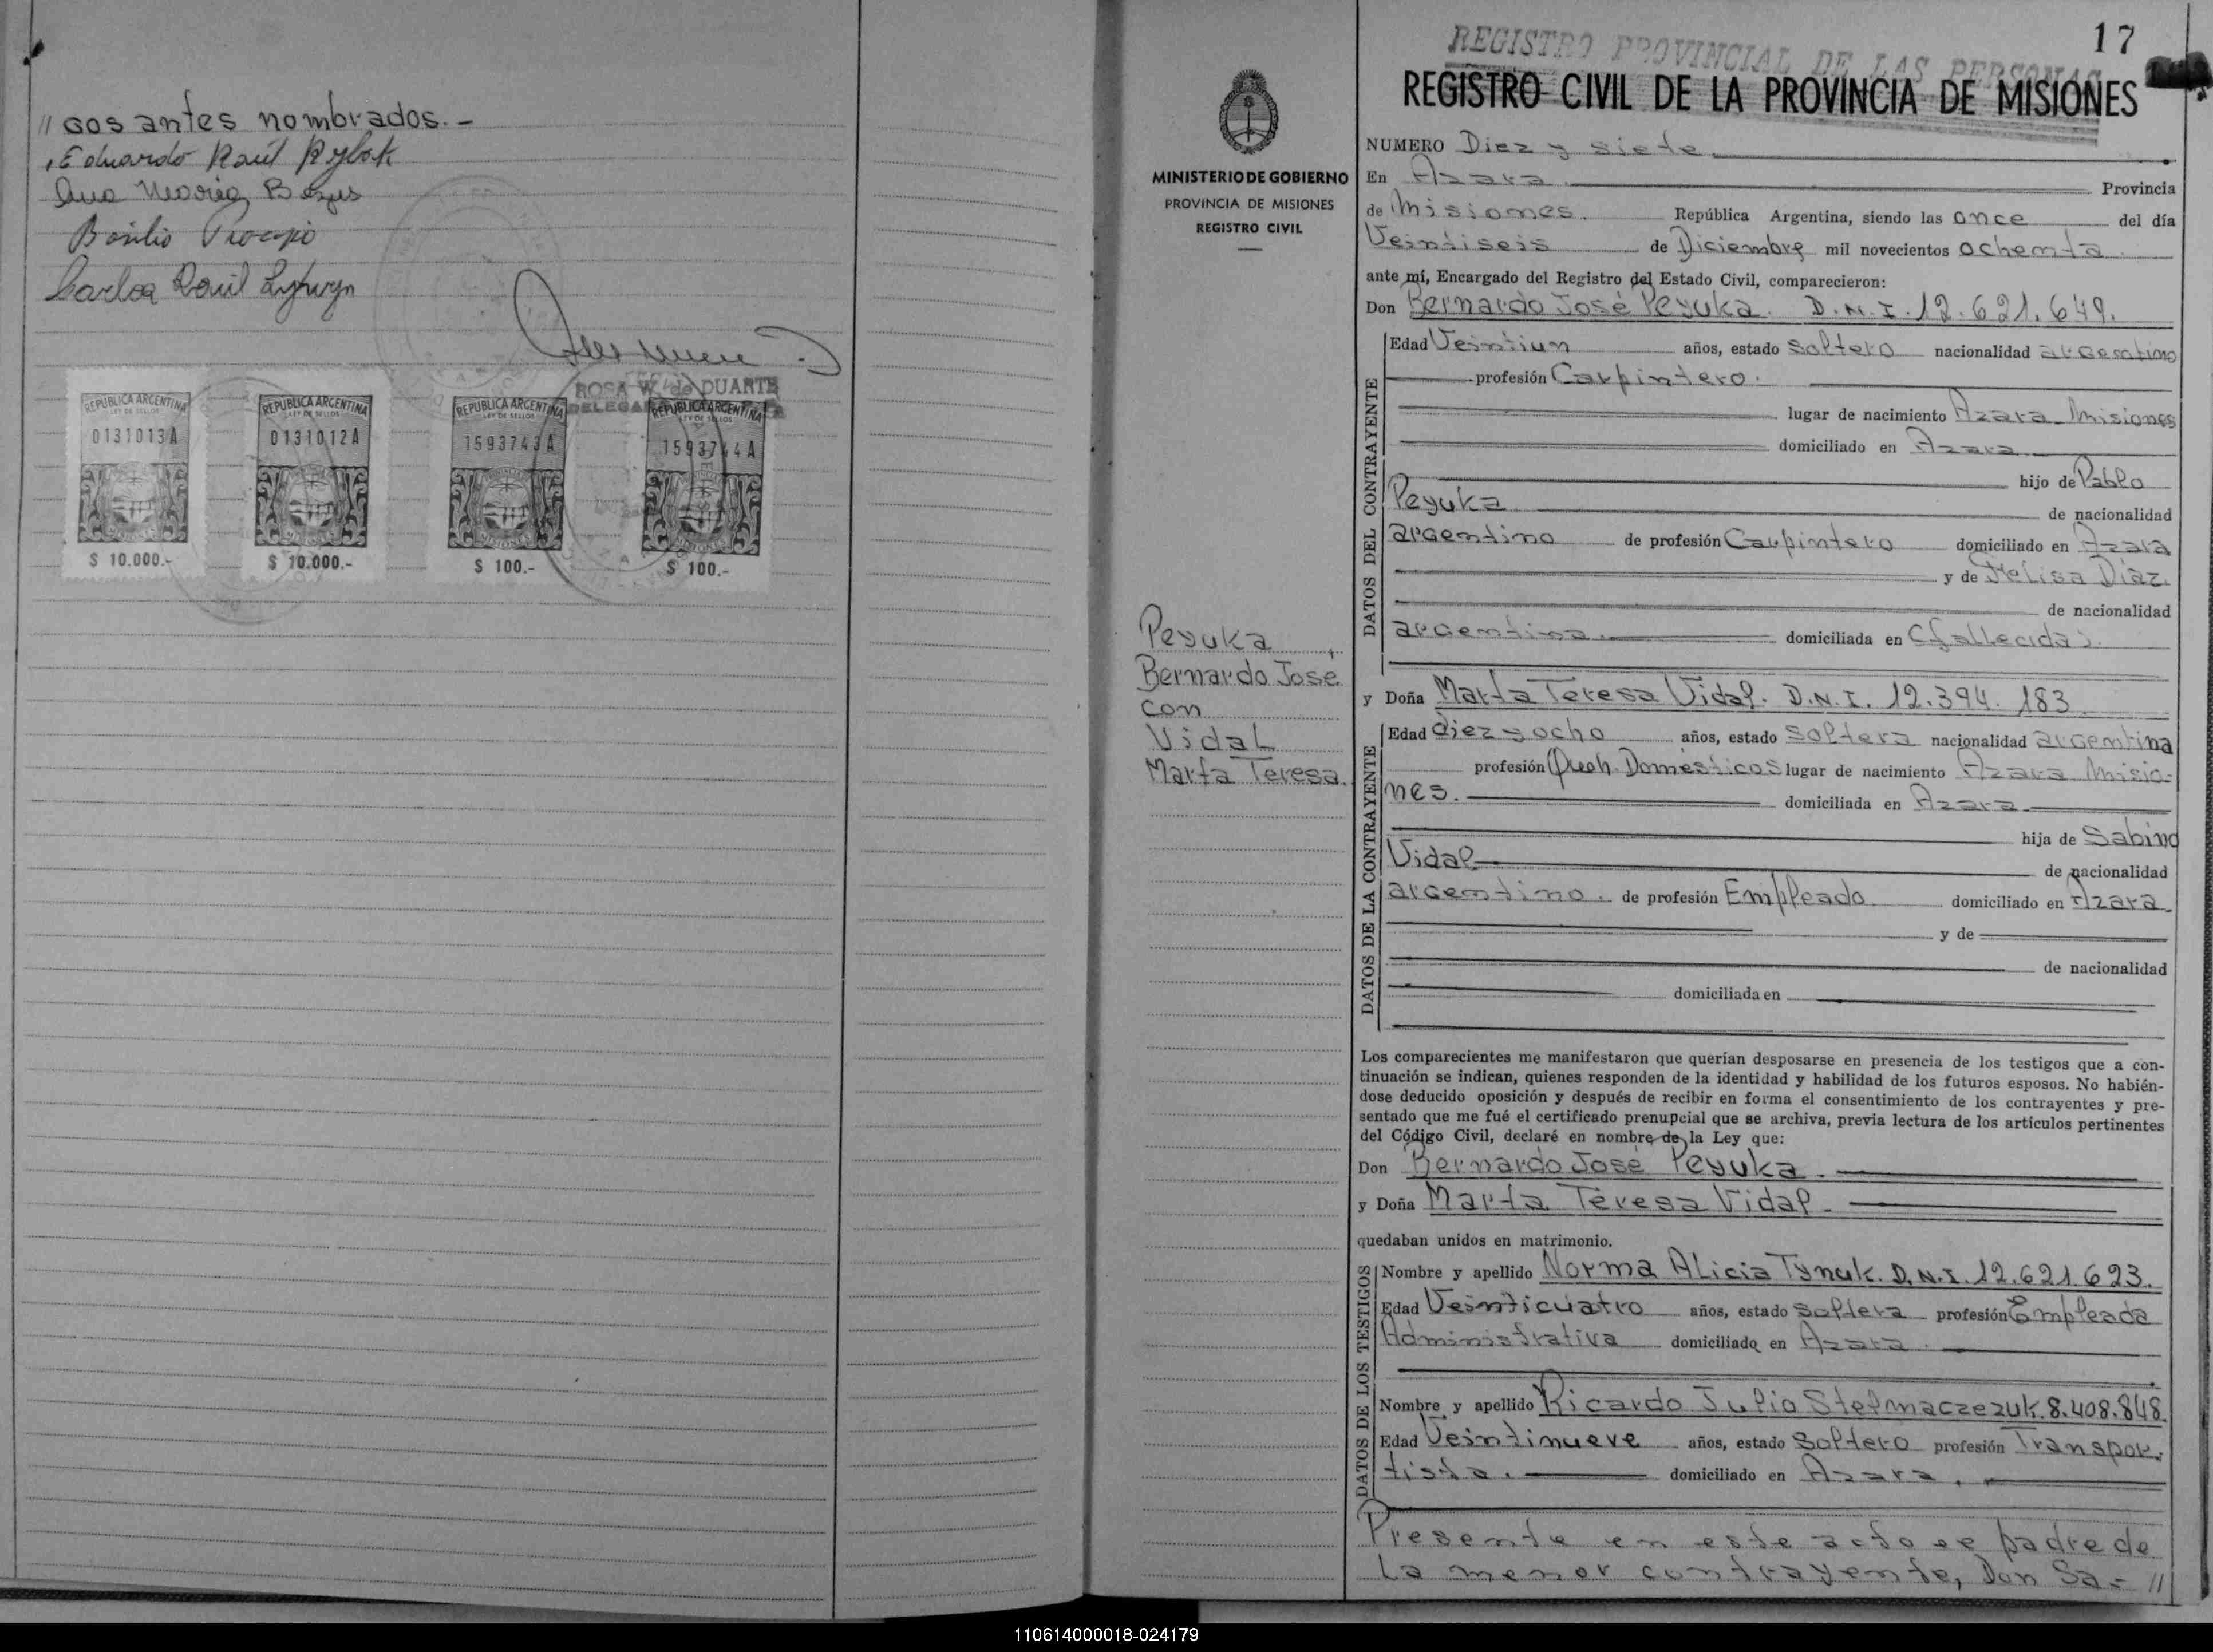 // gos antes nombrados.-
Eduardo Raúl Rybak
Ana María
Basilio
Carlos Raúl Lytwyn
ROSA W. de DUARTE
REPUBLICA ARGENTINA
LEY DE SELLOS
0131013A
MISIONES
$ 10.000.-
REPUBLICA ARGENTINA
LEY DE SELLOS
0131012A
MISIONES
$ 10.000.-
REPUBLICA ARGENTINA
LEY DE SELLOS
1593743A
MISIONES
$ 100.-
REPUBLICA ARGENTINA
LEY DE SELLOS
1593744A
MISIONES
$ 100.-
MINISTERIO DE GOBIERNO
PROVINCIA DE MISIONES
REGISTRO CIVIL
Peyuka,
Bernardo José
con
Vidal
Marta Teresa.
17
REGISTRO PROVINCIAL DE LAS PERSONAS
REGISTRO CIVIL DE LA PROVINCIA DE MISIONES
NUMERO Diez y siete
En Azara Provincia
de Misiones. República Argentina, siendo las once del día
Veintiseis de Diciembre mil novecientos ochenta.
ante mí, Encargado del Registro del Estado Civil, comparecieron:
Don Bernardo José Peyuka. D.N.I. 12.621.649.
DATOS DEL CONTRAYENTE
Edad Veintiun años, estado soltero nacionalidad argentino
profesión Carpintero.
lugar de nacimiento Azara Misiones
domiciliado en Azara
hijo de Pablo
Peyuka de nacionalidad
argentino de profesión Carpintero domiciliado en Azara
y de Melisa Díaz.
de nacionalidad
argentina. domiciliada en (fallecida).
y Doña Marta Teresa Vidal. D.N.I. 12.394.183
DATOS DE LA CONTRAYENTE
Edad diez y ocho años, estado soltera nacionalidad argentina
profesión Queh. Domésticos lugar de nacimiento Azara Misio-
nes. domiciliada en Azara
hija de Sabino
Vidal de nacionalidad
argentino. de profesión Empleado domiciliado en Azara
y de
de nacionalidad
domiciliada en
Los comparecientes me manifestaron que querían desposarse en presencia de los testigos que a con-
tinuación se indican, quienes responden de la identidad y habilidad de los futuros esposos. No habién-
dose deducido oposición y después de recibir en forma el consentimiento de los contrayentes y pre-
sentado que me fué el certificado prenupcial que se archiva, previa lectura de los artículos pertinentes
del Código Civil, declaré en nombre de la Ley que:
Don Bernardo José Peyuka.
y Doña Marta Teresa Vidal.
quedaban unidos en matrimonio.
DATOS DE LOS TESTIGOS
Nombre y apellido Norma Alicia Tynuk. D.N.I. 12.621.623.
Edad Veinticuatro años, estado soltera profesión Empleada
Administrativa domiciliado en Azara.
Nombre y apellido Ricardo Julio Stelmaczezuk. 8.408.848.
Edad Veintinueve años, estado Soltero profesión Transpor-
tista. domiciliado en Azara.
Presente en este acto el padre de
la menor contrayente, Don Sa- //
110614000018-024179